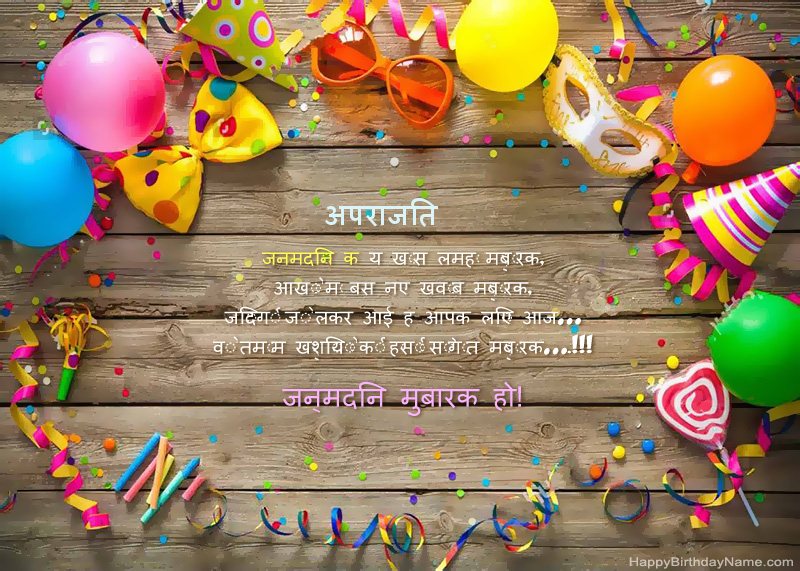 अपराजति
जनमदनि क य खास लमहा मुबारक,
आखों में बसे नए खवाब मुबारक,
जदिगी जो लेकर आई है आपके लएि आज...
वो तमाम खुशयिों की हसीं सौगात मुबारक...!!!
जन्मदनि मुबारक हो!
HappyBirthdayName.com